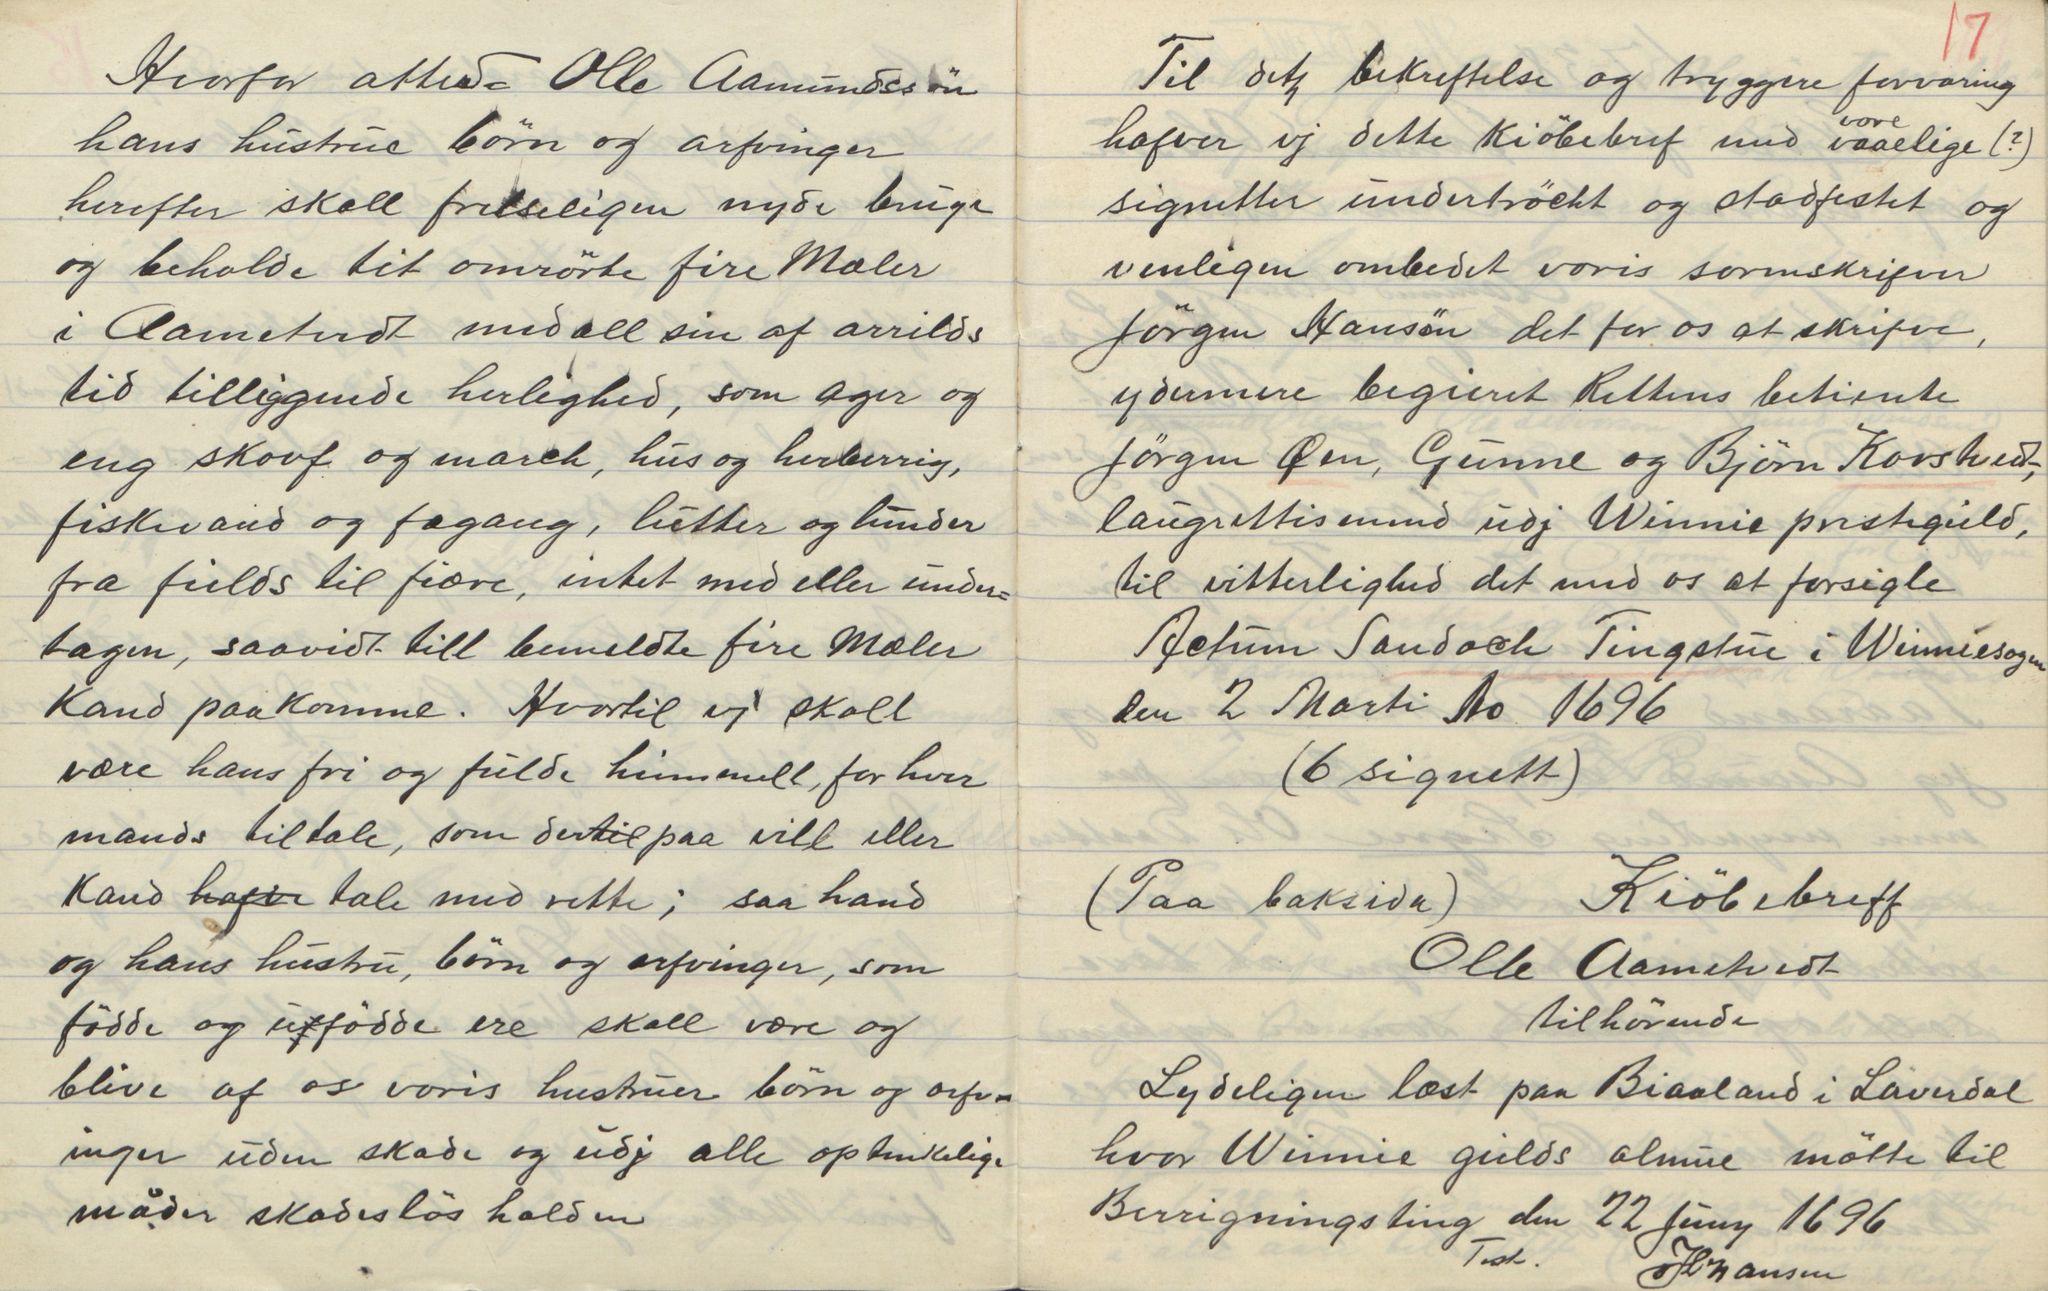 Hvorfor attede Olle Aamundssön
hans hustrue börn og arfvinger
herefter skall frelseligen nyde bruge
og beholde tit omrörte fire Mæler
i Aametvedt med all sin af arrilds
tid tilliggende herlighed, som ager og
eng skovf og march, hus og herberrig,
fiskevand og fægang, lutter og lunder
fra fields til fiære, intet med eller under=
tagen, saavidt till bemeldte fire Mæler
kand paakomme. Hvortil vj skall
være hans fri og fulde himmell, for hver
mands tiltale, som dertil paa vill eller
kand hafve tale med rette; saa hand
og hans hustru, börn og arfvinger, som
födde og uffödde ere skall være og
blive af os voris hustruer börn og arfv=
inger uden skade og udj alle optenkelige
måder skadeslös holden
17
Til detz bekreftelse og tryggere forvaring
hafver vj dette Kiöbebref med vore vaaelige (?)
signetter undertröckt og stadfestet og
venligen ombedet voris sorenskrifver
Jörgen Hansön det for os at skrifve,
ydermere begieret Rettens betiente
Jörgen Öen, Gunne og Björn Kovstvedt,
laugrettismend udj Winnie prestegield,
til vitterlighed det med os at forsigle
Actum Landock Tingstue i Winniesogen
den 2 Marti Ao 1696
(6 signett)
(Paa baksida) Kiöbebreff
Olle Aametvedt
tilhörende
Lydeligen læst paa Biaaland i Laverdal
hvor Winnie gields almue mötte til
Berrigningsting den 22 Juny 1696
Test. JHansen